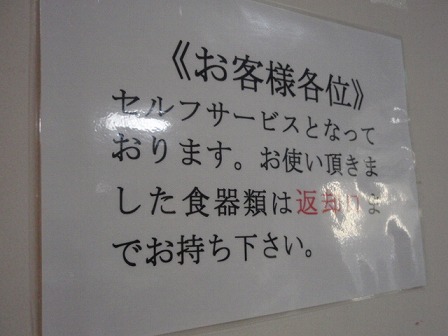 《お客様各位》
セルフサービスとなって
おります。お使い頂きま
した食器類は返却口ま
でお持ち下さい。